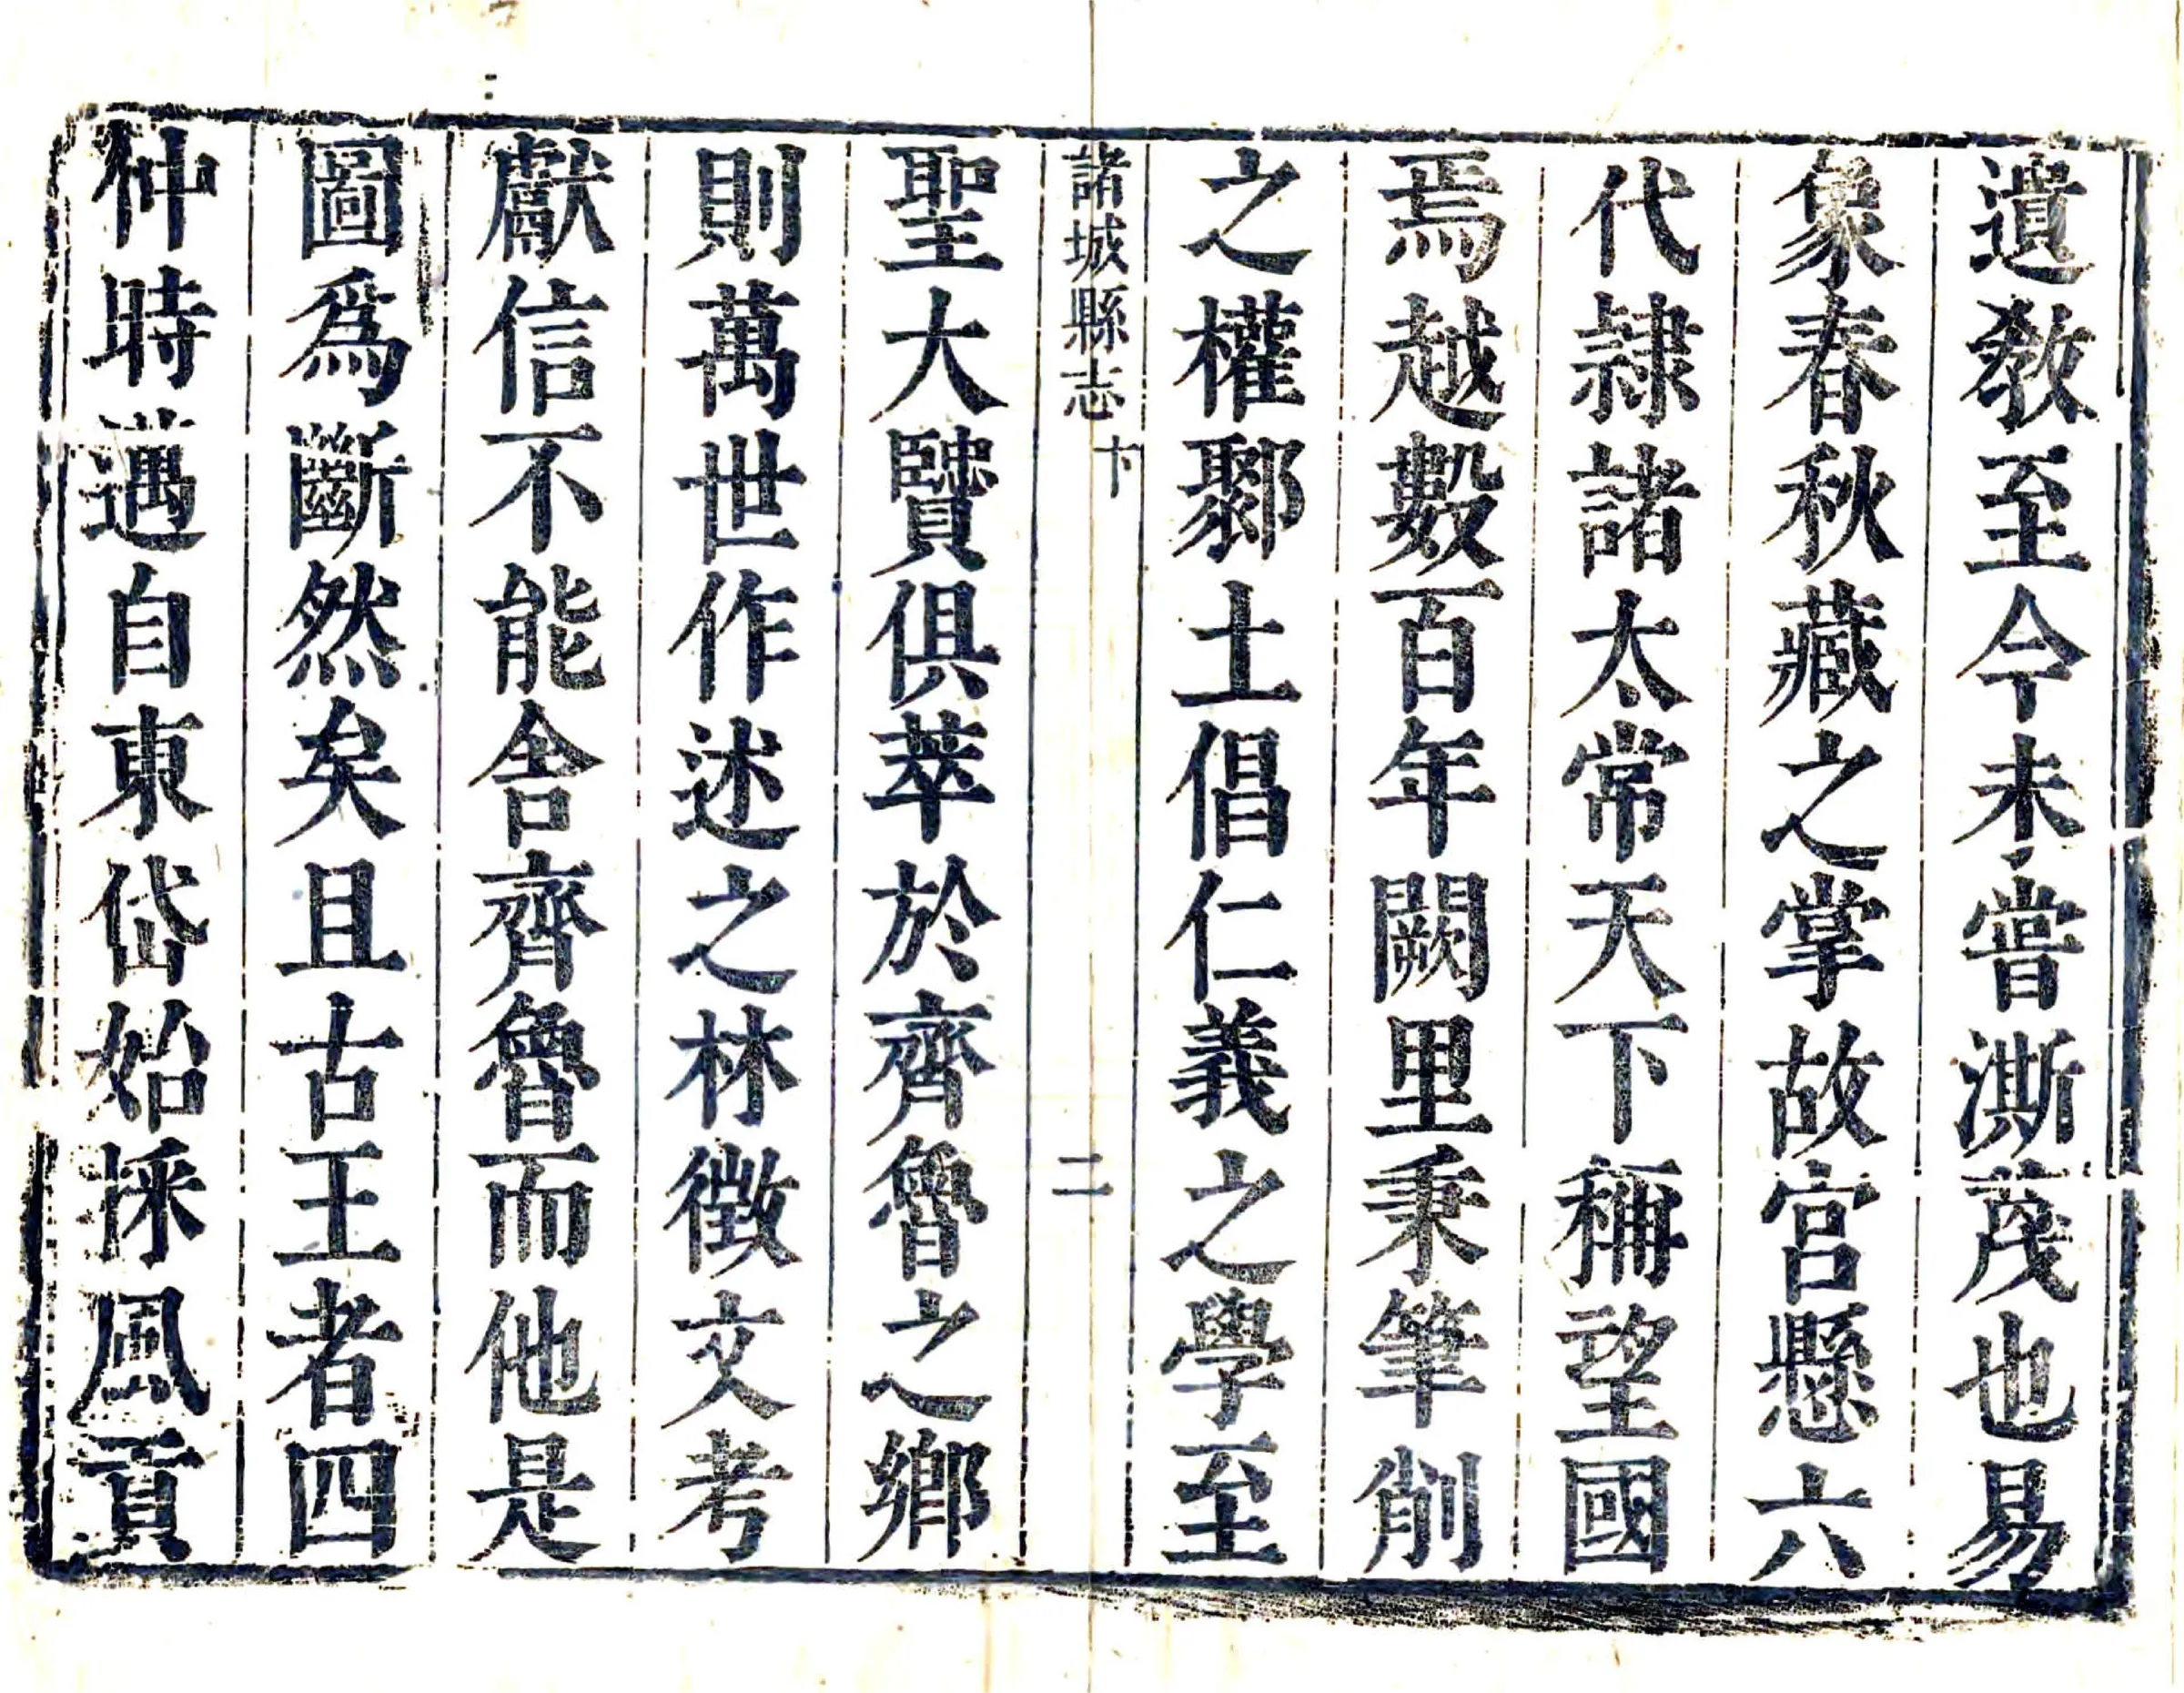 遺敎至今未嘗澌蔑也易
象春秋藏之掌故宮懸六
代隷諸太常天下稱望國
焉越數百年闕里秉筆削
之權鄹土倡仁義之學至
諸城縣志
二
聖大賢俱萃於齊魯之鄉
則萬世作述之林徵文考
獻信不能舍齊魯而他是
圖爲斷然矣且古王者四
仲時邁自東岱始採風貢